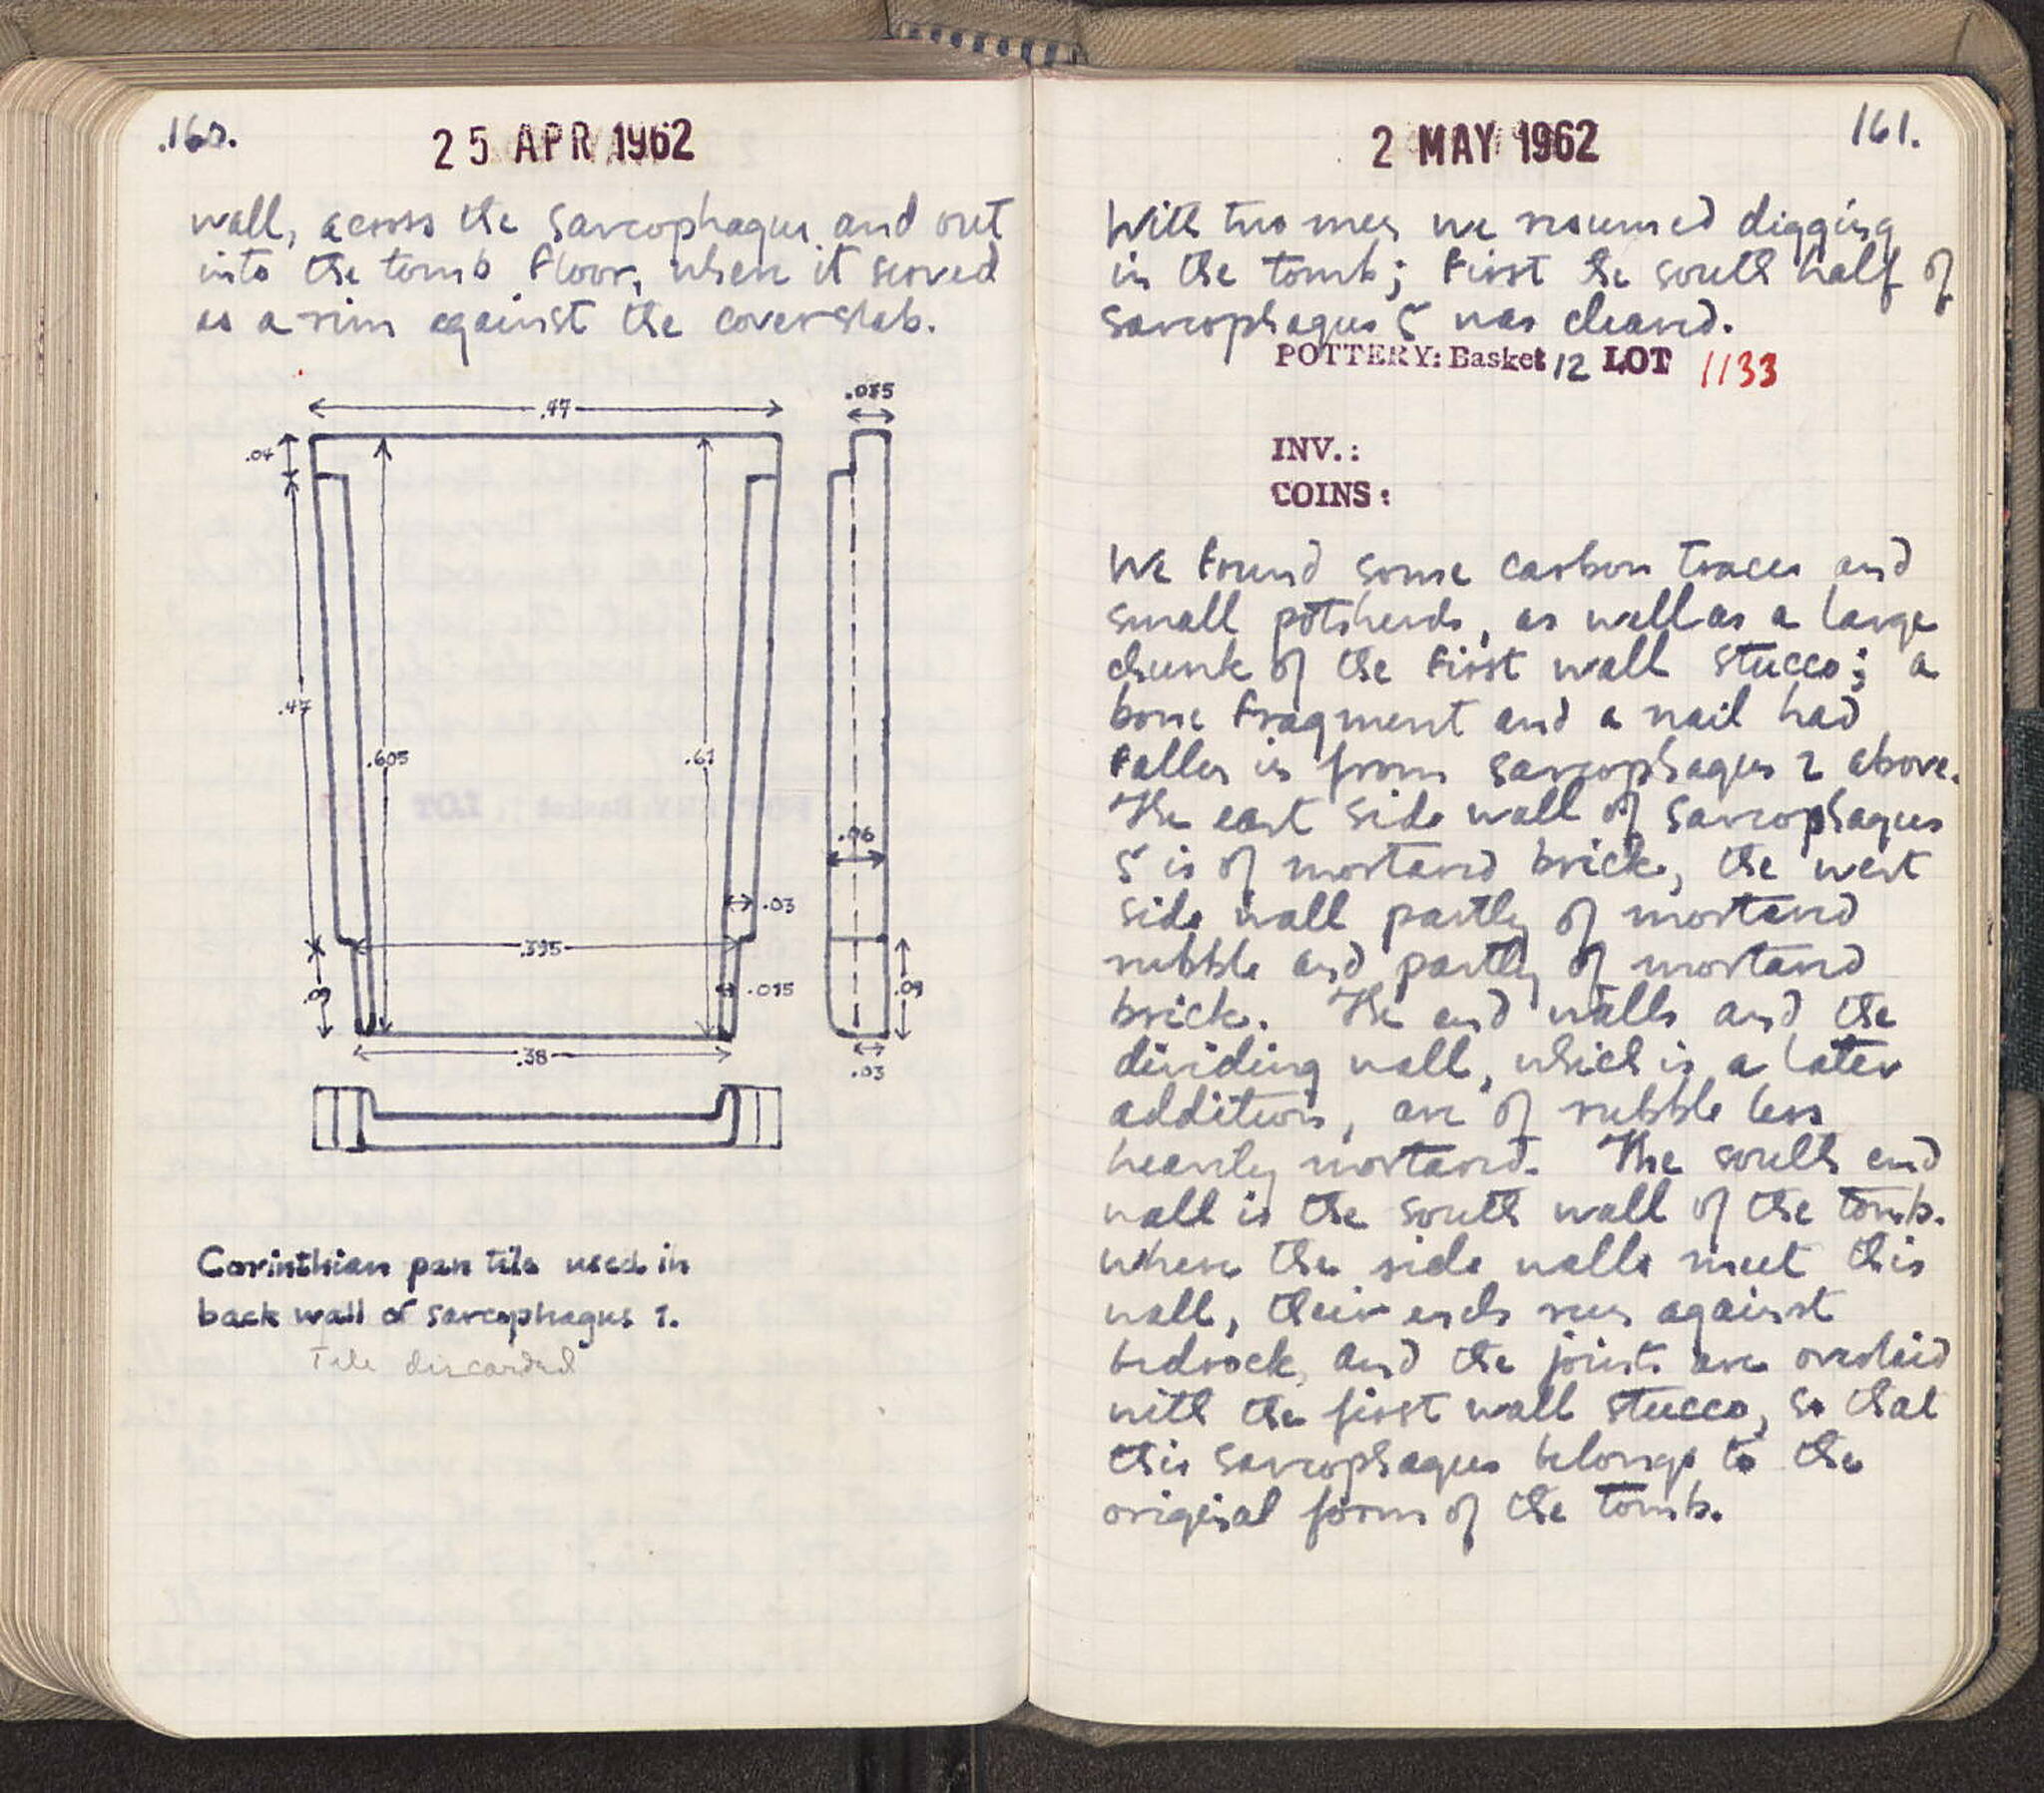 160.
25 APR 1962
wall, across the sarcophagus and out
into the tomb floor, where it served
as a rim against the coverslab.
.47
.035
.04
.47
.605
.61
.06
.03
.395
.09
.015
.09
.38
.03
Corinthian pan tile used in
back wall of sarcophagus 1.
Tile discarded
2 MAY 1962
161.
With two men we resumed digging
in the tomb; first the south half of
sarcophagus 5 was cleared.
POTTERY: Basket 12 LOT 1133
INV.:
COINS:
We found some carbon traces and
small potsherds, as well as a large
chunk of the first wall stucco; a
bone fragment and a nail had
fallen in from sarcophagus 2 above.
The east side wall of sarcophagus
5 is of mortared brick, the west
side wall partly of mortared
rubble and partly of mortared
brick. The end walls and the
dividing wall, which is a later
addition, are of rubble less
heavily mortared. The south end
wall is the south wall of the tomb.
where the side walls meet this
wall, their ends run against
bedrock, and the joints are overlaid
with the first wall stucco, so that
this sarcophagus belongs to the
original form of the tomb.